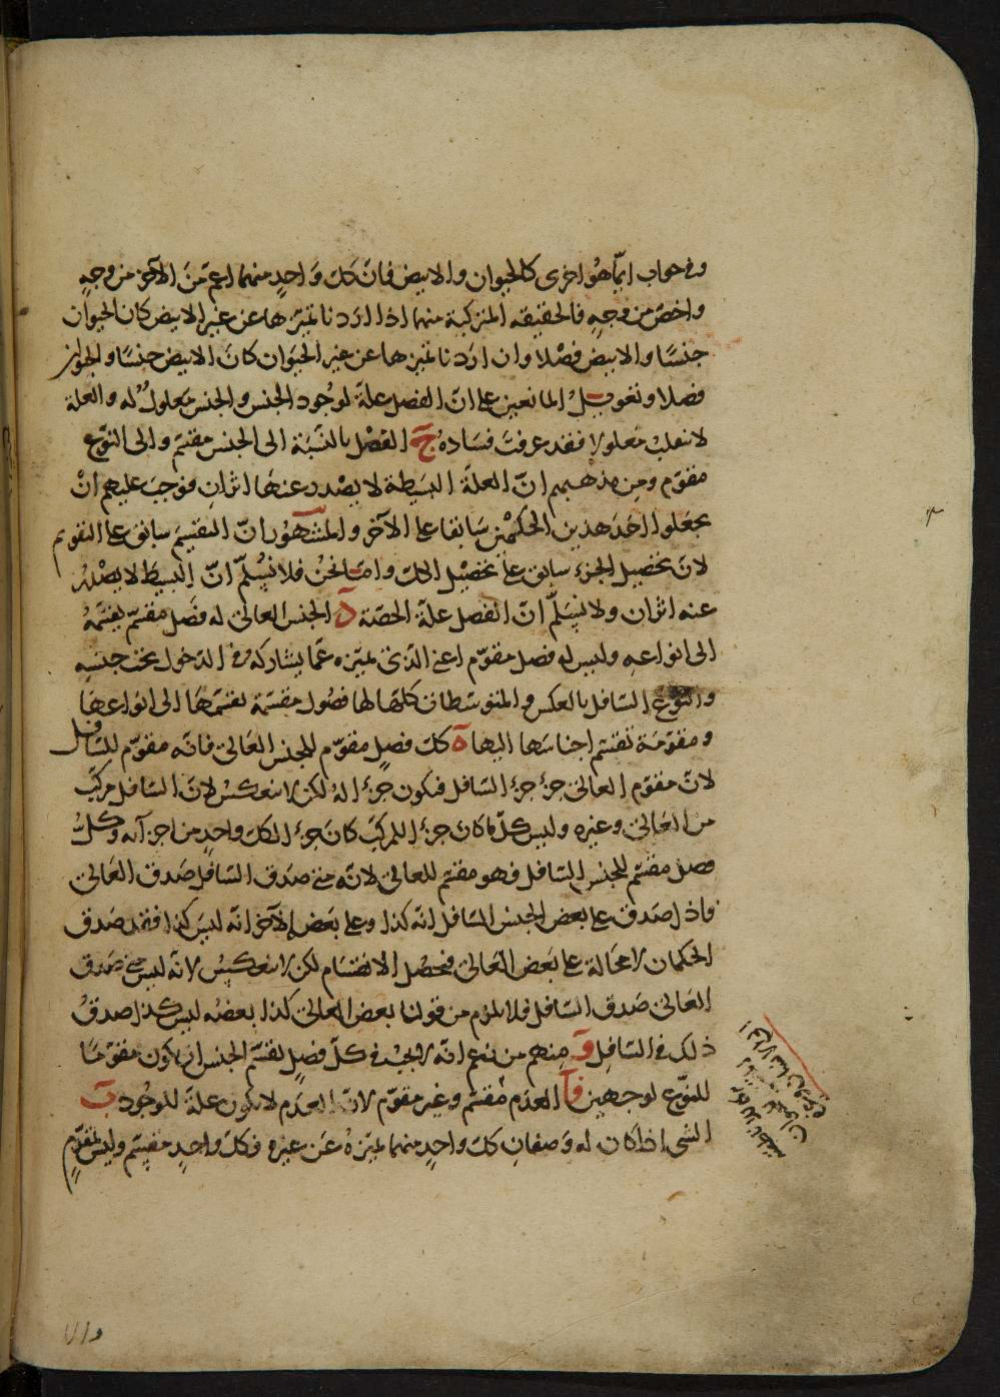 وفى جواب ايّما هو اخرى كالحيوان والابيض فانّ كلّ واحدٍ منهما اعمّ منَ الآخر من وجهٍ
واخصّ من وجهٍ فالحقيقه المتركبة منهما اذا اردنا تميّزها عن غير الابيض كان الحيوان
جنسًا والابيض فصْلا وان اردنا تميزها عن غير الحيَوان كانَ الابيض جنسًا والحيوان
فصلا وتعويلُ المانعين على انّ الفصل علة لوُجود الجنس والجنس معلولٌ له والعلة
لا تنقلبُ معلولا فقد عرفتَ فسَادهُ جَ الفصْل بالنّسْبَة الى الجنس مقسّم والى النّوع
مقوّم ومِن مذهبهم انّ العلّة البَسيطة لا يصْدر عنهَا اثرانِ فوجبَ عليهم انْ
يجعَلوا احَدَ هذين الحكمْينِ سَابقا على الآخر والمشهوُر انّ التقسيمَ سابق على التقويم
لانّ تحصيل الجزء سابق على تحصيْل الكلّ وامّا نحنُ فلا نُسلّم انّ البسيطَ لا يصْدرُ
عنه اثران ولا نسَلّم انّ الفصل علّة الحصّة دَ الجنس العالى له فصَل مقسّم يقسّمُهُ
الى انواعهِ وليس له فصل مقوّم اعنى الّذى يميّزه عمّا يشاركه فى الدّخول تحت جنسِهِ
والنّوع السّافل بالعكس والمتوسّطات كلّها لها فصُول مقسّمَة تقسّمهَا الى انواعهَا
ومقوّمَة تقسّم اجناسَها اليها هَ كلّ فصلٍ مقوّم للجنس العَالى فانّه مقوّم للسّافل
لانّ مقوّم العالى جزءُ جزءِ السّافل فيكون جزءًا لهُ لكن لا ينعكسُ لانّ السّافل مركّب
من العَالى وغيره وليس كلّ ما كان جزءًا للمركّب كانَ جزءًا لكلّ واحدٍ من اجزآئه وكلّ
فصل مقسّم للجنس السّافل فهو مقسّم للعالى لانّه متى صدَق السّافل صَدق العَالى
فاذا صَدق على بعض الجنس السّافل انّه كذا وعلى بَعض الآخر انّه ليسَ كذا فقد صَدق
الحكمان لا محَالة على بَعض العَالى فيحصُل الانقسَام لكن لا ينعكسُ لانّه ليسَ متى صَدق
العَالى صَدق السّافل فلا يلزم من قولنا بعض العَالى كذا بعضُه ليس كذا صدقُ
ذلك فى السّافل وَ منهم من زعم انّه لا يجبُ فى كلّ فصلٍ يقسّم الجنس ان يكون مقوّمًا
للنّوع لوجهين آ العدَم مُقسّم وغير مقوّم لانّ العدَم لا يكون علّة للوجُود بَ
الشّىء اذا كان له وَصفانِ كلّ واحدٍ منهما يميّزهُ عَن غيره فكلّ واحدٍ مقسِّم وليس بمقوّمٍ